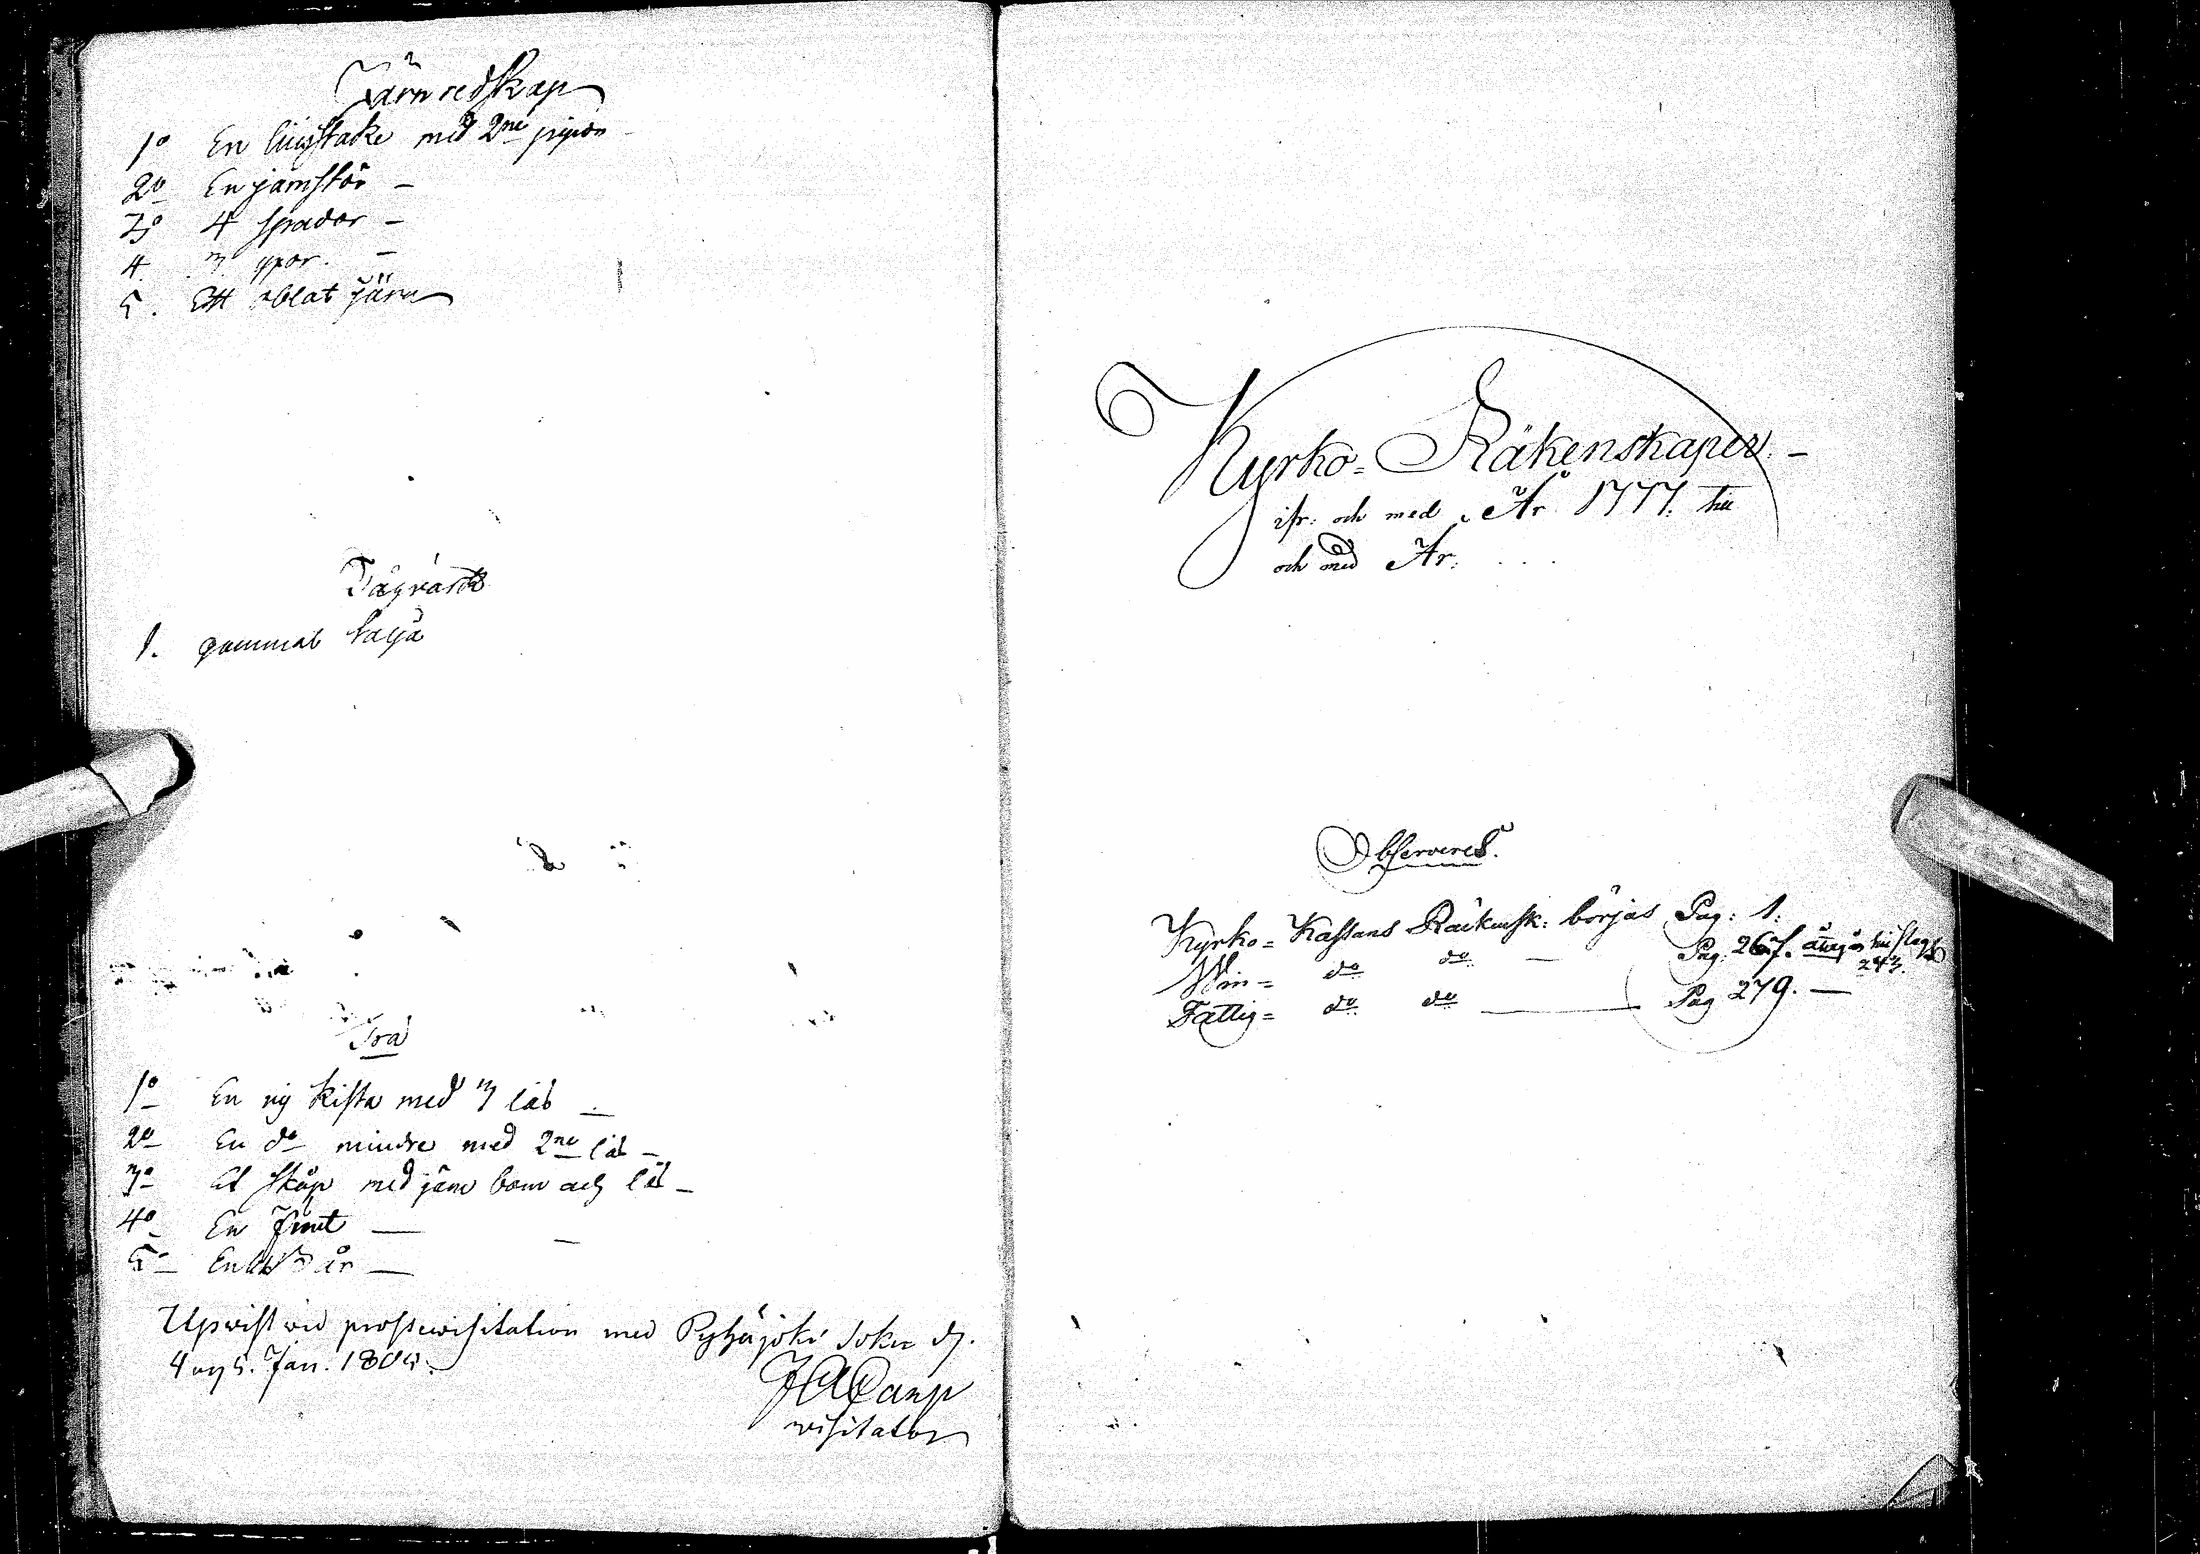 Järnredskap
1o En liusstake med 2ne pipor
2o En järnstör –
3o 4 spador –
4. 3 gpor. –
5. Ett oblat järn
Tågvärke
1. gammal talja
Trä
1o En ny kista med 3 lås –
2o En do mindre med 2ne lås –
3o Et skåp med järn bom och lås –
4o En —
5o —
Upvist vid prostevisitation med Pyhäjoki Sokn d.
4 och 5. Jan. 180
visitator
Kyrko= Räkenskaper. –
ifr: och med År 1777. till
och med År. . . .
Observeres.
Kyrko= Kassans Räkensk: börjas Pag: 1.
Win= do do — Pag: 267.
Fattig= do do — Pag 279. —